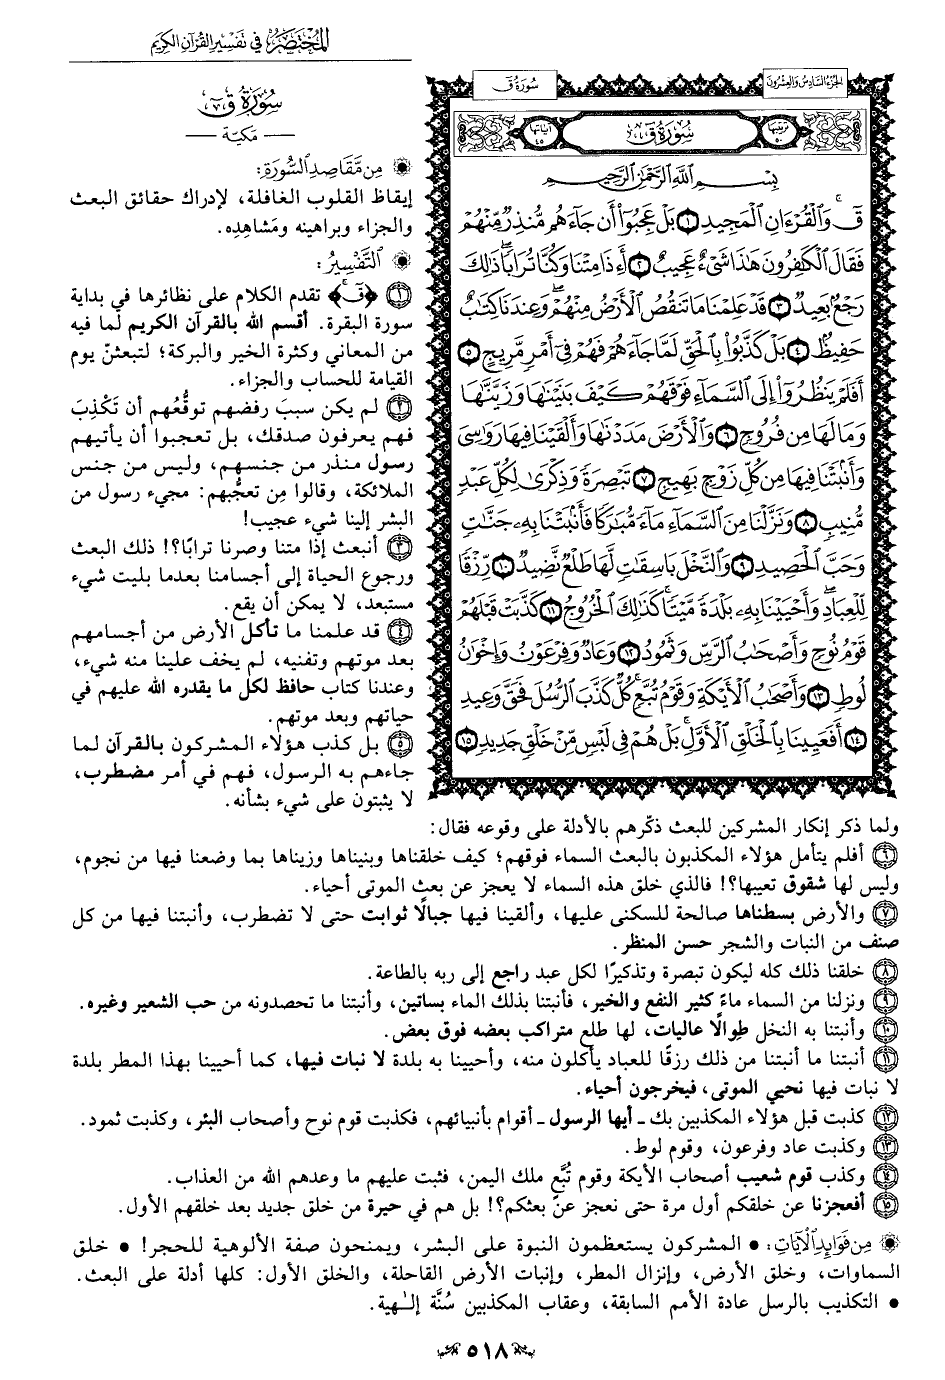 المختصر في تفسير القرآن الكريم
الجزء السادس والعشرون
سورة ق
ترتيبها ٥٠
سورة ق
آياتها ٤٥
بِسْمِ ٱللَّهِ ٱلرَّحْمَٰنِ ٱلرَّحِيمِ
قٓۚ وَٱلْقُرْءَانِ ٱلْمَجِيدِ ١ بَلْ عَجِبُوٓا۟ أَن جَآءَهُم مُّنذِرٌ مِّنْهُمْ
فَقَالَ ٱلْكَٰفِرُونَ هَٰذَا شَىْءٌ عَجِيبٌ ٢ أَءِذَا مِتْنَا وَكُنَّا تُرَابًاۖ ذَٰلِكَ
رَجْعٌۢ بَعِيدٌ ٣ قَدْ عَلِمْنَا مَا تَنقُصُ ٱلْأَرْضُ مِنْهُمْۖ وَعِندَنَا كِتَٰبٌ
حَفِيظٌۢ ٤ بَلْ كَذَّبُوا۟ بِٱلْحَقِّ لَمَّا جَآءَهُمْ فَهُمْ فِىٓ أَمْرٍ مَّرِيجٍ ٥
أَفَلَمْ يَنظُرُوٓا۟ إِلَى ٱلسَّمَآءِ فَوْقَهُمْ كَيْفَ بَنَيْنَٰهَا وَزَيَّنَّٰهَا
وَمَا لَهَا مِن فُرُوجٍ ٦ وَٱلْأَرْضَ مَدَدْنَٰهَا وَأَلْقَيْنَا فِيهَا رَوَٰسِىَ
وَأَنۢبَتْنَا فِيهَا مِن كُلِّ زَوْجٍۭ بَهِيجٍ ٧ تَبْصِرَةً وَذِكْرَىٰ لِكُلِّ عَبْدٍ
مُّنِيبٍ ٨ وَنَزَّلْنَا مِنَ ٱلسَّمَآءِ مَآءً مُّبَٰرَكًا فَأَنۢبَتْنَا بِهِۦ جَنَّٰتٍ
وَحَبَّ ٱلْحَصِيدِ ٩ وَٱلنَّخْلَ بَاسِقَٰتٍ لَّهَا طَلْعٌ نَّضِيدٌ ١٠ رِّزْقًا
لِّلْعِبَادِۖ وَأَحْيَيْنَا بِهِۦ بَلْدَةً مَّيْتًاۚ كَذَٰلِكَ ٱلْخُرُوجُ ١١ كَذَّبَتْ قَبْلَهُمْ
قَوْمُ نُوحٍ وَأَصْحَٰبُ ٱلرَّسِّ وَثَمُودُ ١٢ وَعَادٌ وَفِرْعَوْنُ وَإِخْوَٰنُ
لُوطٍ ١٣ وَأَصْحَٰبُ ٱلْأَيْكَةِ وَقَوْمُ تُبَّعٍۚ كُلٌّ كَذَّبَ ٱلرُّسُلَ فَحَقَّ وَعِيدِ
١٤ أَفَعَيِينَا بِٱلْخَلْقِ ٱلْأَوَّلِۚ بَلْ هُمْ فِى لَبْسٍ مِّنْ خَلْقٍ جَدِيدٍ ١٥
سورة ق
مكية
من مقاصد السورة:
إيقاظ القلوب الغافلة، لإدراك حقائق البعث
والجزاء وبراهينه ومَشاهِده.
التفسير:
١ ﴿قٓ﴾ تقدم الكلام على نظائرها في بداية
سورة البقرة. أقسم الله بالقرآن الكريم لما فيه
من المعاني وكثرة الخير والبركة؛ لتبعثنّ يوم
القيامة للحساب والجزاء.
٢ لم يكن سببَ رفضهم توقُّعُهم أن تَكْذِبَ
فهم يعرفون صدقك، بل تعجبوا أن يأتيهم
رسول منذر من جنسهم، وليس من جنس
الملائكة، وقالوا مِن تعجُّبهم: مجيء رسول من
البشر إلينا شيء عجيب!
٣ أنبعث إذا متنا وصرنا ترابًا؟! ذلك البعث
ورجوع الحياة إلى أجسامنا بعدما بليت شيء
مستبعد، لا يمكن أن يقع.
٤ قد علمنا ما تأكل الأرض من أجسامهم
بعد موتهم وتفنيه، لم يخف علينا منه شيء،
وعندنا كتاب حافظ لكل ما يقدره الله عليهم في
حياتهم وبعد موتهم.
٥ بل كذب هؤلاء المشركون بالقرآن لما
جاءهم به الرسول، فهم في أمر مضطرب،
لا يثبتون على شيء بشأنه.
ولما ذكر إنكار المشركين للبعث ذكّرهم بالأدلة على وقوعه فقال:
٦ أفلم يتأمل هؤلاء المكذبون بالبعث السماء فوقهم؛ كيف خلقناها وبنيناها وزيناها بما وضعنا فيها من نجوم،
وليس لها شقوق تعيبها؟! فالذي خلق هذه السماء لا يعجز عن بعث الموتى أحياء.
٧ والأرض بسطناها صالحة للسكنى عليها، وألقينا فيها جبالًا ثوابت حتى لا تضطرب، وأنبتنا فيها من كل
صنف من النبات والشجر حسن المنظر.
٨ خلقنا ذلك كله ليكون تبصرة وتذكيرًا لكل عبد راجع إلى ربه بالطاعة.
٩ ونزلنا من السماء ماءً كثير النفع والخير، فأنبتنا بذلك الماء بساتين، وأنبتنا ما تحصدونه من حب الشعير وغيره.
١٠ وأنبتنا به النخل طِوالًا عاليات، لها طلع متراكب بعضه فوق بعض.
١١ أنبتنا ما أنبتنا من ذلك رزقًا للعباد يأكلون منه، وأحيينا به بلدة لا نبات فيها، كما أحيينا بهذا المطر بلدة
لا نبات فيها نحيي الموتى، فيخرجون أحياء.
١٢ كذبت قبل هؤلاء المكذبين بك ـ أيها الرسول ـ أقوام بأنبيائهم، فكذبت قوم نوح وأصحاب البئر، وكذبت ثمود.
١٣ وكذبت عاد وفرعون، وقوم لوط.
١٤ وكذب قوم شعيب أصحاب الأيكة وقوم تُبَّع ملك اليمن، فثبت عليهم ما وعدهم الله من العذاب.
١٥ أفعجزنا عن خلقكم أول مرة حتى نعجز عن بعثكم؟! بل هم في حيرة من خلق جديد بعد خلقهم الأول.
من فوائد الآيات: • المشركون يستعظمون النبوة على البشر، ويمنحون صفة الألوهية للحجر! • خلق
السماوات، وخلق الأرض، وإنزال المطر، وإنبات الأرض القاحلة، والخلق الأول: كلها أدلة على البعث.
• التكذيب بالرسل عادة الأمم السابقة، وعقاب المكذبين سُنَّة إلـٰهية.
٥١٨